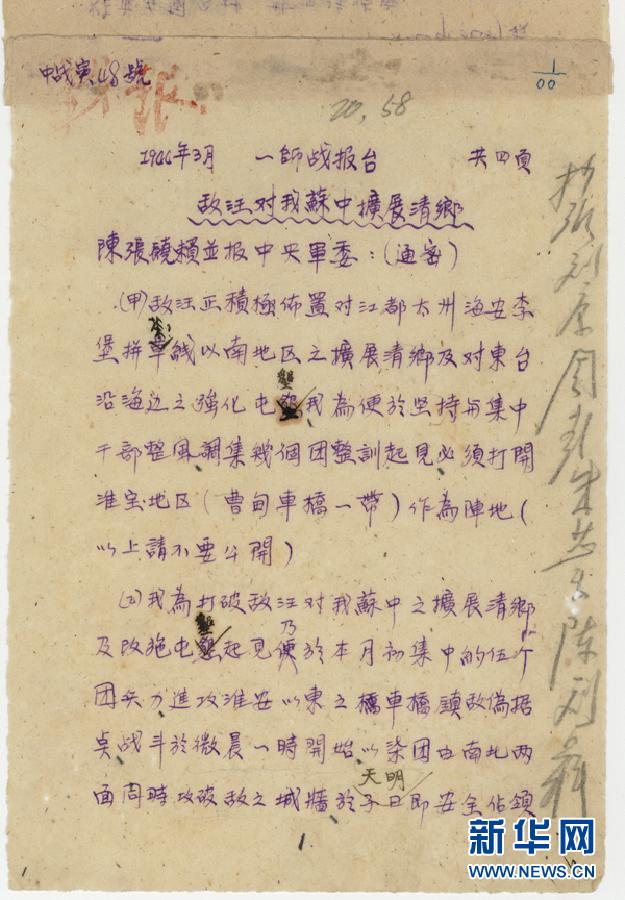 中战寅48號
1/00
战报
20,58
1944年3月 一師战报台 共四頁
敌汪对我蘇中擴展清鄉
陳張饒賴並报中央軍委：(通密)
(甲)敌汪正積極佈置对江都太州海安李
堡拼茶線以南地区之擴展清鄉及对東台
沿海边之強化屯墾我為便於坚持与集中
干部整風調集幾個团整訓起見必須打開
淮宝地区(曹甸車橋一帶)作為陣地(
以上請不要公開)
(乙)我為打破敌汪对我蘇中之擴展清鄉
及改施屯墾起見乃便於本月初集中的伍个
团兵力進攻淮安以東之車橋鎮敌偽据
奌战斗於微晨一時開始以叁团由南北两
面同時攻破敌之城牆於五日天明即安全佔領
1
新华网
WWW.NEWS.CN